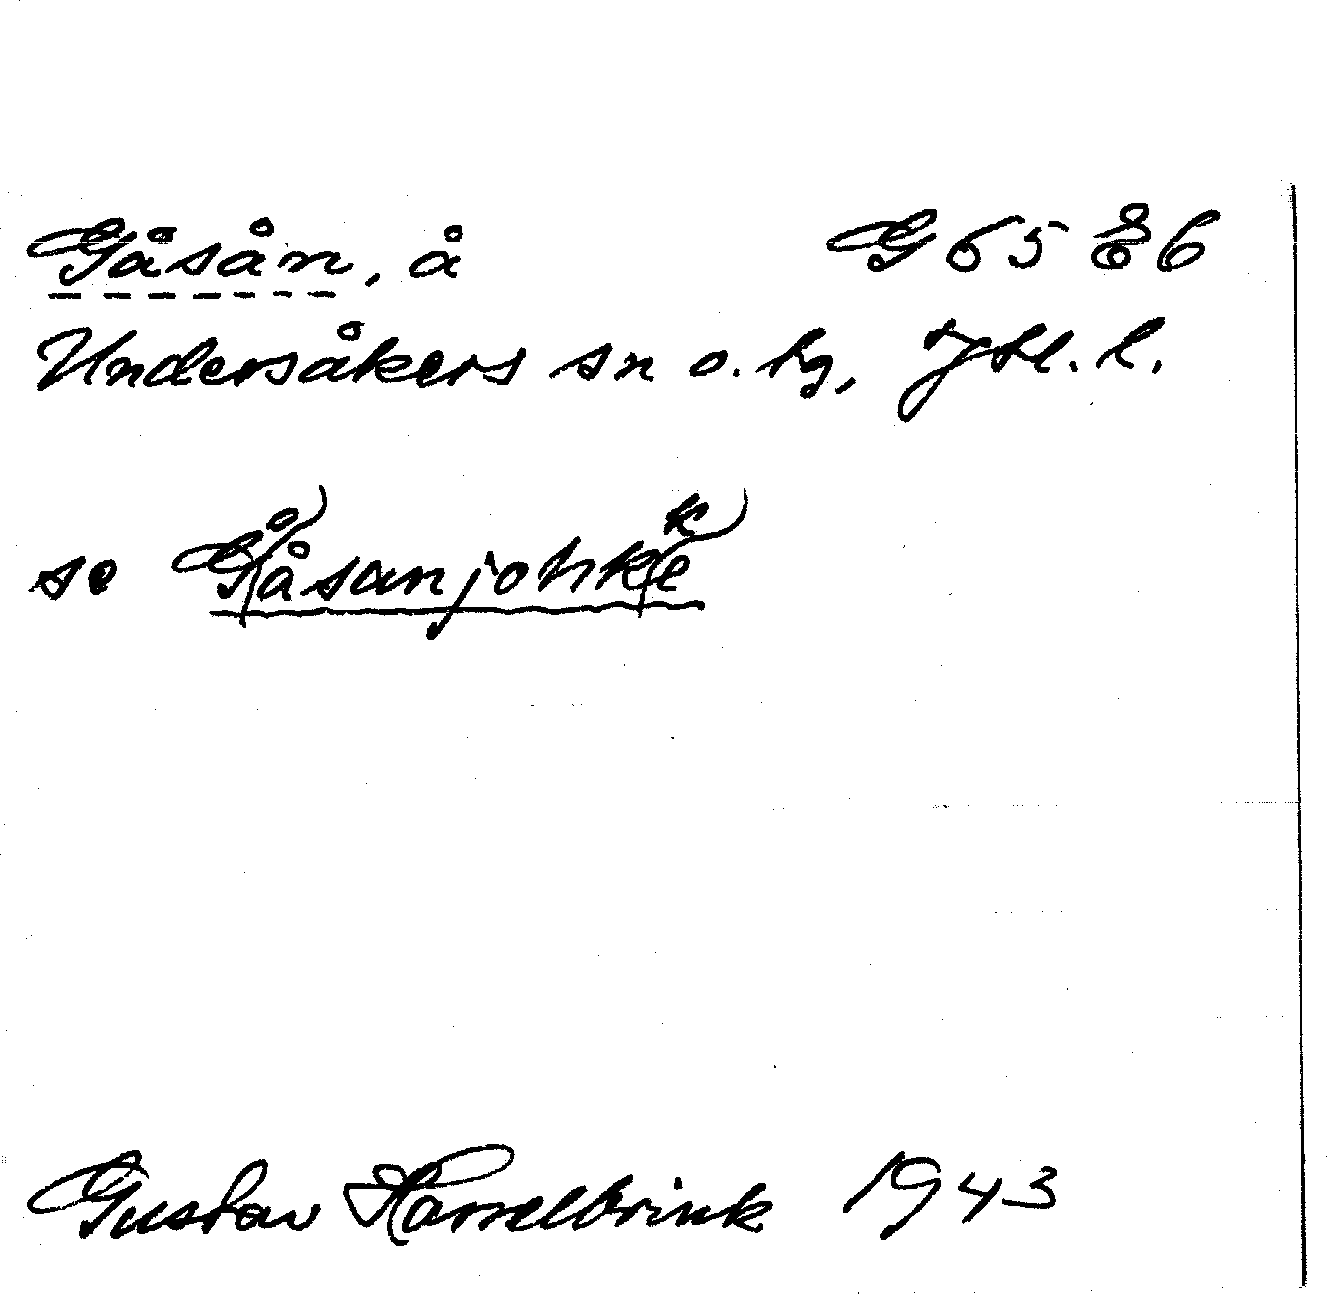 Gåsån, å G 65 E 6
Undersåkers sn o. hg, Jtl. l.
se Gååsanjohkke
Gustav Hasselbrink 1943